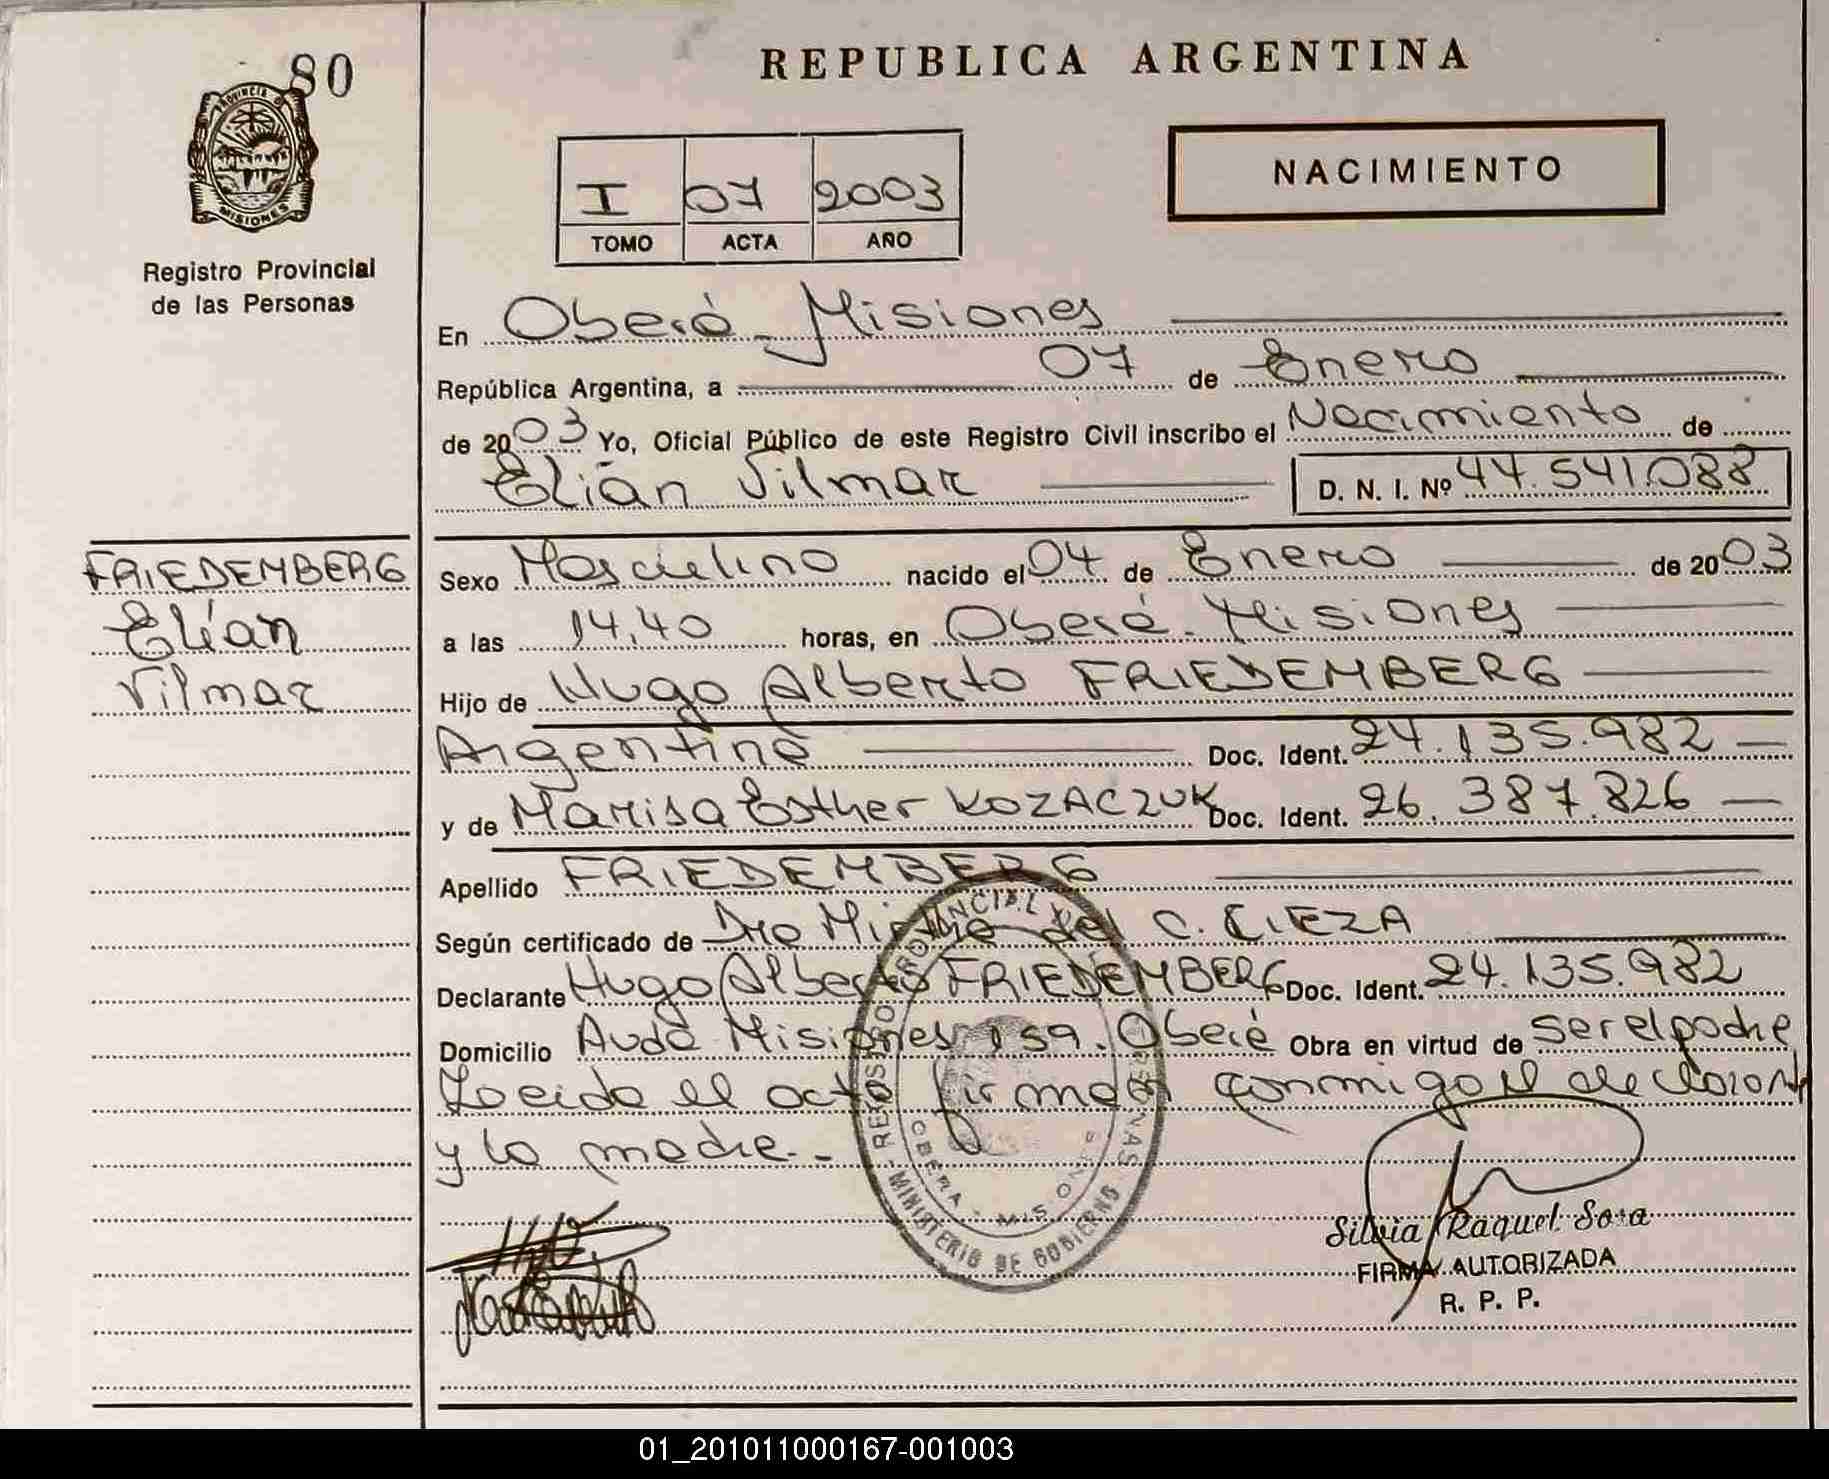 80
PROVINCIA DE
MISIONES
Registro Provincial
de las Personas
REPUBLICA ARGENTINA
I 07 2003
TOMO ACTA AÑO
NACIMIENTO
En Oberá - Misiones
República Argentina, a 07 de Enero
de 2003 Yo, Oficial Público de este Registro Civil inscribo el Nacimiento de
Elián Vilmar D. N. I. Nº 44.541.088
FRIEDEMBERG
Elían
Vilmar
Sexo Masculino nacido el 04 de Enero de 2003
a las 14.40 horas, en Oberá - Misiones
Hijo de Hugo Alberto FRIEDEMBERG
Argentina Doc. Ident. 24.135.982
y de Marisa Esther KOZACZUK Doc. Ident. 26.387.826
Apellido FRIEDEMBERG
Según certificado de Dra del C. CIEZA
Declarante Hugo Alberto FRIEDEMBERG Doc. Ident. 24.135.982
Domicilio Avda Misiones 159. Oberá Obra en virtud de ser el padre
Leída el acta firman conmigo el declarante
y la madre.-
MINISTERIO DE GOBIERNO
OBERA - MISIONES
Silvia Raquel Sosa
FIRMA AUTORIZADA
R. P. P.
01_201011000167-001003